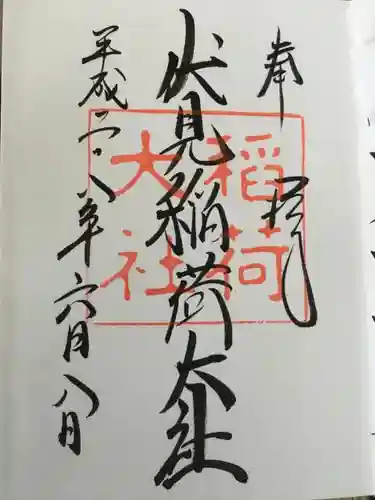 奉拝
伏見稲荷大社
平成二八年六月八日
稲荷
大社